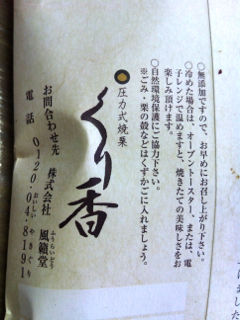 ○無添加ですので、お早めにお召し上がり下さい。
○冷めた場合は、オーブントースター、または、電
子レンジで温めますと、焼きたての美味しさをお
楽しみ頂けます。
○自然環境保護にご協力下さい。
※ごみ・栗の殻などはくずかごに入れましょう。
圧力式焼栗
くり香
お問合わせ先 株式会社 風籟堂
ふうらいどう
電話 0120-04-8191
おいしい やきぐり